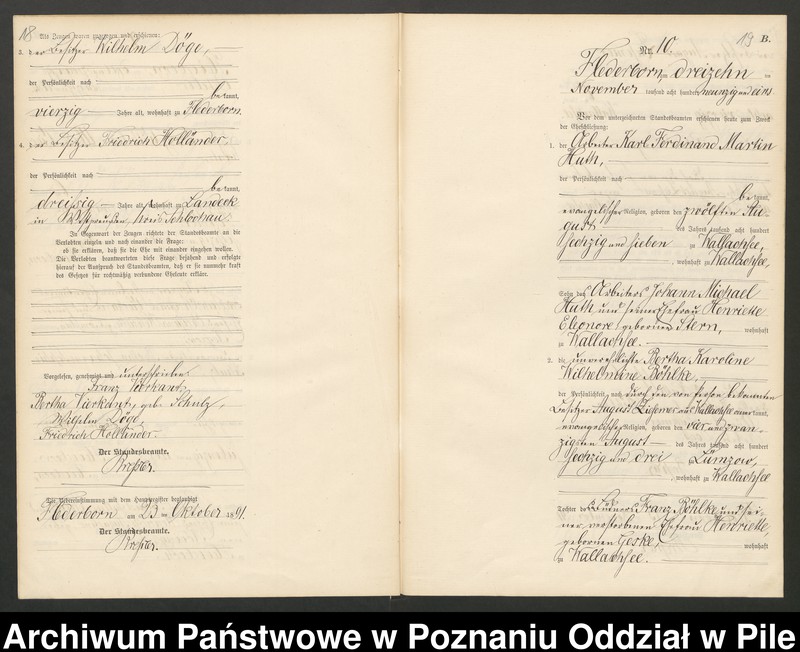 18
Als Zeugen waren zugezogen und erschienen:
3. der Besitzer Wilhelm Döge,
der Persönlichkeit nach
bekannt,
vierzig Jahre alt, wohnhaft zu Flederborn.
4. der Besitzer Friedrich Holländer,
der Persönlichkeit nach
bekannt,
dreißig Jahre alt, wohnhaft zu Landeck
in Westpreußen, Kreis Schlochau.
In Gegenwart der Zeugen richtete der Standesbeamte an die
Verlobten einzeln und nach einander die Frage:
ob sie erklären, daß sie die Ehe mit einander eingehen wollen.
Die Verlobten beantworteten diese Frage bejahend und erfolgte
hierauf der Ausspruch des Standesbeamten, daß er sie nunmehr kraft
des Gesetzes für rechtmäßig verbundene Eheleute erkläre.
Vorgelesen, genehmigt und unterschrieben
Franz Vierkant,
Bertha Vierkant, geb. Schulz,
Wilhelm Döge,
Friedrich Holländer.
Der Standesbeamte.
Die Uebereinstimmung mit dem Hauptregister beglaubigt
Flederborn am 23 ten Oktober 1891.
Der Standesbeamte.
19
B.
Nr. 10.
Flederborn, am dreizehn ten
November tausend acht hundert neunzig und eins
Vor dem unterzeichneten Standesbeamten erschienen heute zum Zweck
der Eheschließung:
1. der Arbeiter Karl Ferdinand Martin
Huth,
der Persönlichkeit nach
bekannt,
evangelischer Religion, geboren den zwölften Au-
gust des Jahres tausend acht hundert
sechzig und sieben zu Wallachsee,
, wohnhaft zu Wallachsee,
Sohn des Arbeiters Johann Michael
Huth und seiner Ehefrau Henriette
Eleonore, geborenen Stern, wohnhaft
zu Wallachsee.
2. die unverehelichte Bertha Karoline
Wilhelmine Böhlke,
der Persönlichkeit nach durch den von Person bekannten
Besitzer August aus Wallachsee anerkannt,
evangelischer Religion, geboren den vier und zwan-
zigsten August des Jahres tausend acht hundert
sechzig und drei zu Lümzow,
, wohnhaft zu Wallachsee
Tochter des Büdners Franz Böhlke und sei-
ner verstorbenen Ehefrau Henriette,
geborenen Geske, wohnhaft
zu Wallachsee.
Archiwum Państwowe w Poznaniu Oddział w Pile